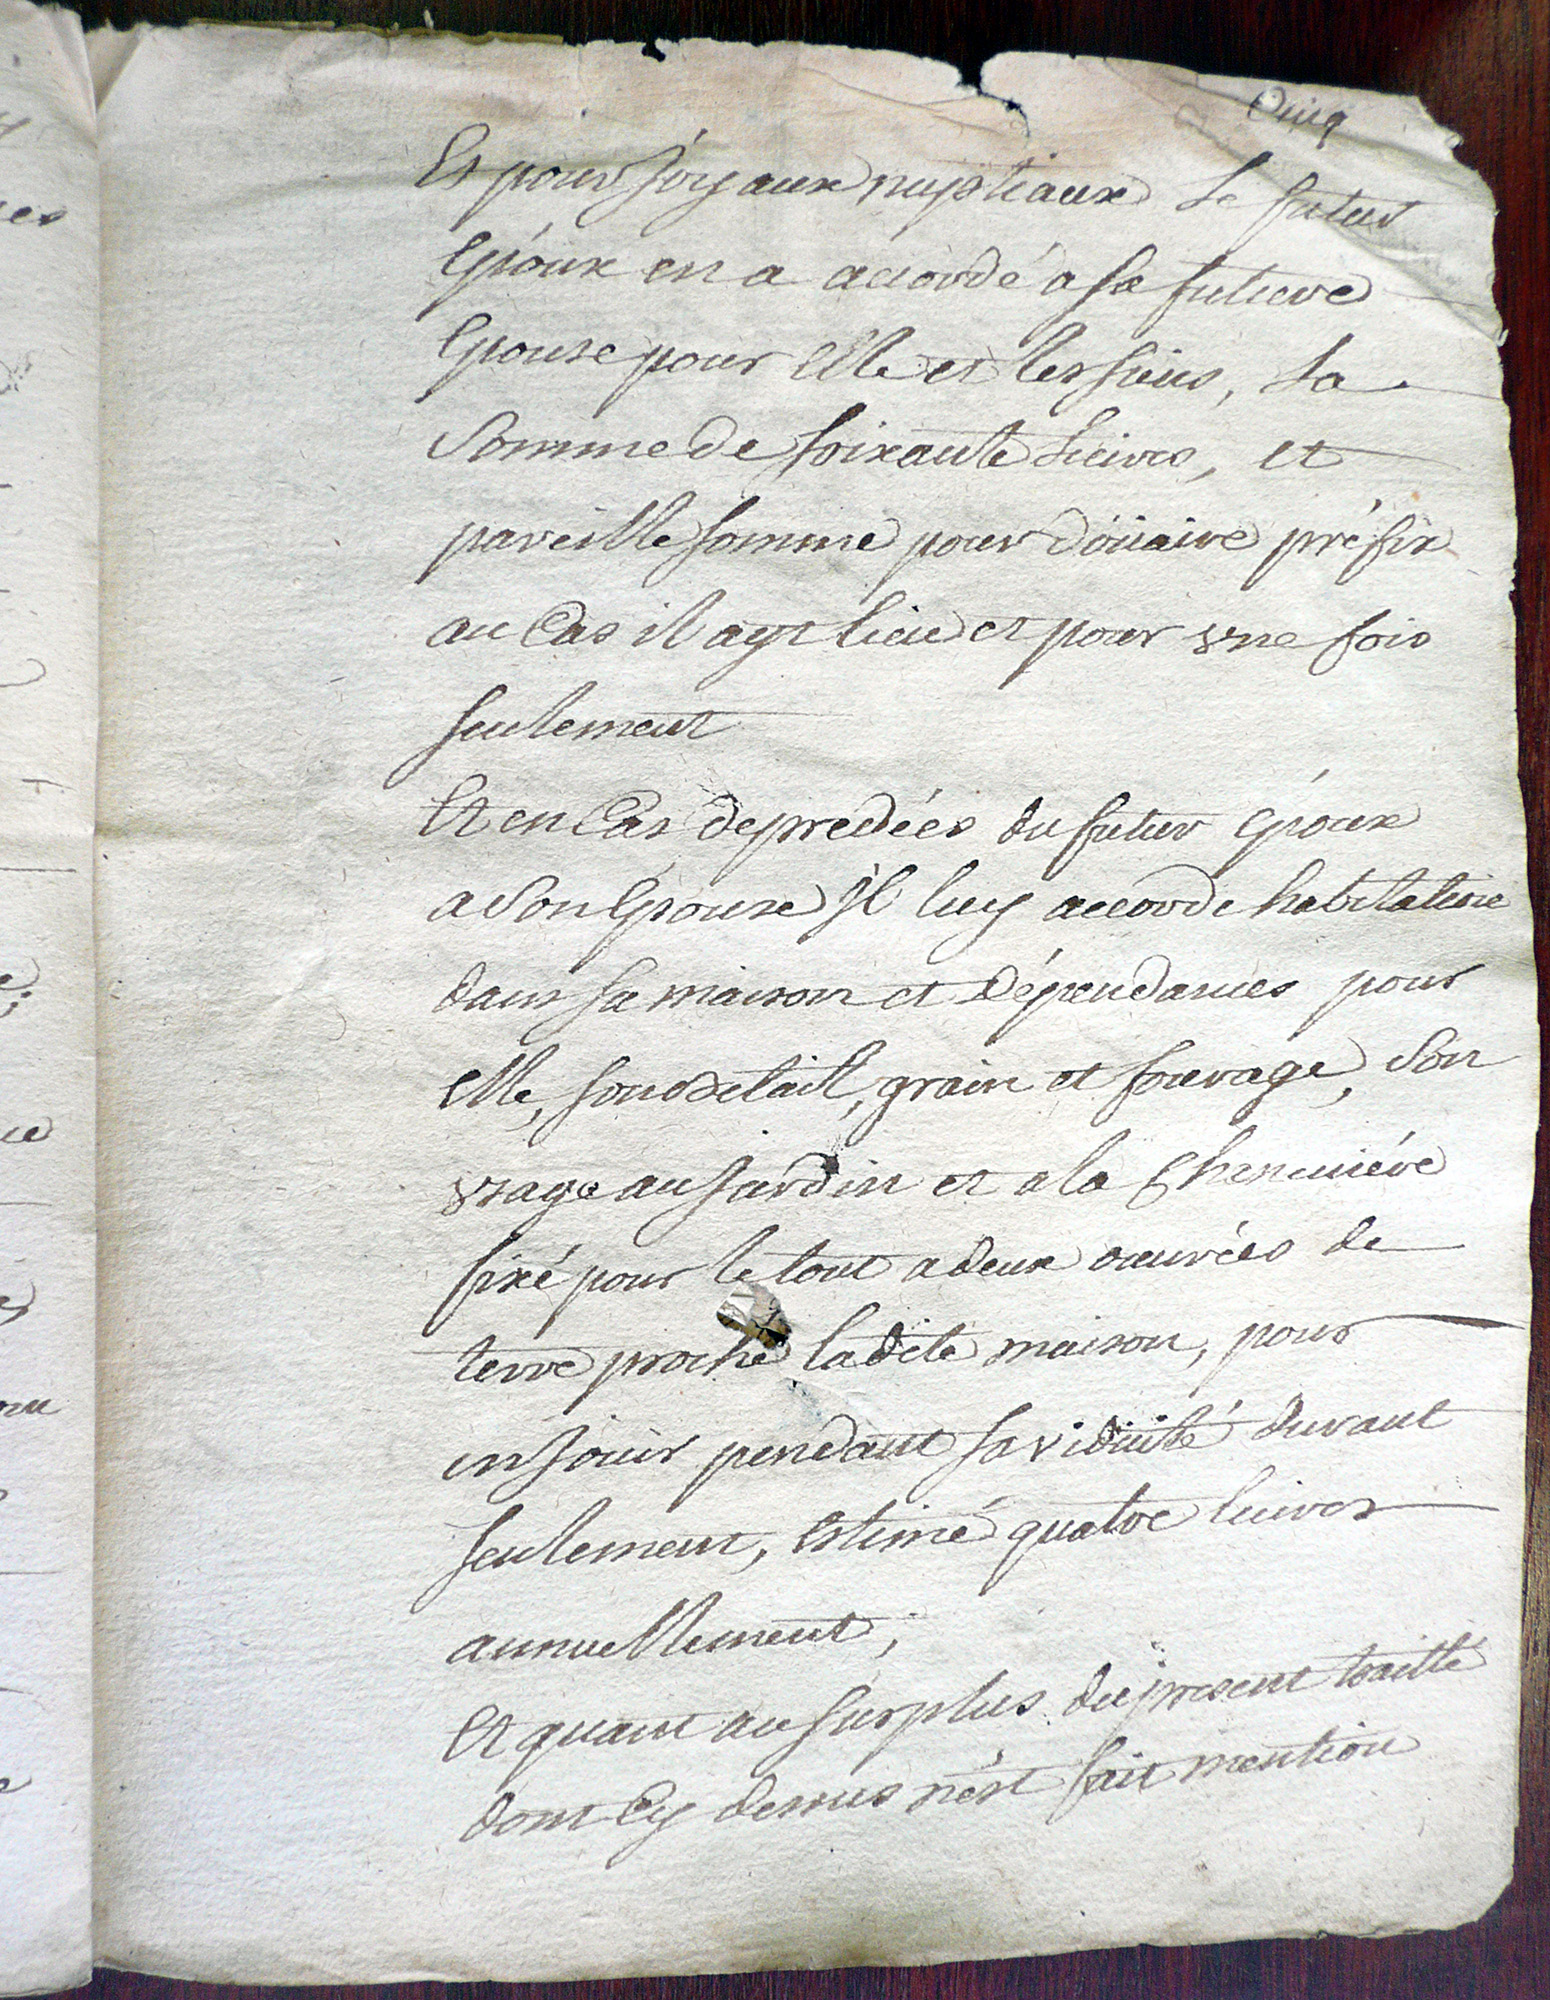 Cinq
Et pour joyaux nuptiaux le futur
Epoux en a accordé a sa future
Epouse pour Elle et les siens, la
Somme de soixante livres, et
pareille somme pour doüaire préfix
au Cas il ayt lieu et pour une fois
seulement
Et en Cas de predécés du futur époux
a Son Epouse Jl luy accorde habitation
dans sa maison et dépendances pour
elle, son détail, grain et fourage, Son
usage au Jardin et a la Cheneviére
fixé pour le tout a deux œuvrées de
terre proche ladite maison, pour
en Jouir pendant sa viduité durant
seulement, Estimé quatre livres
annuellement;
Et quant au surplus du present traitté
dont Cy dessus n'est fait mention